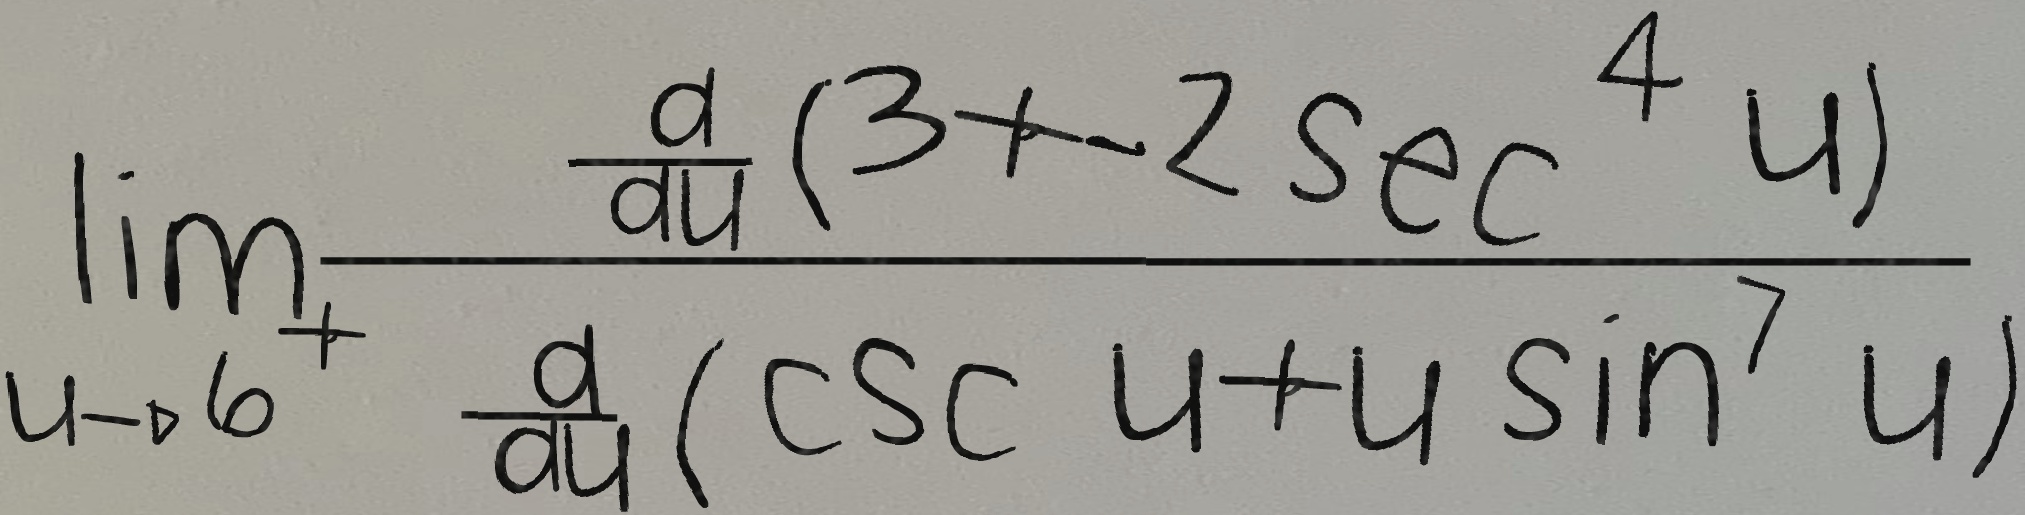 \lim_{u \to 6^+} \frac{\frac{d}{du}(3+-2\sec^4 u)}{\frac{d}{du}(\csc u+u\sin^7 u)}